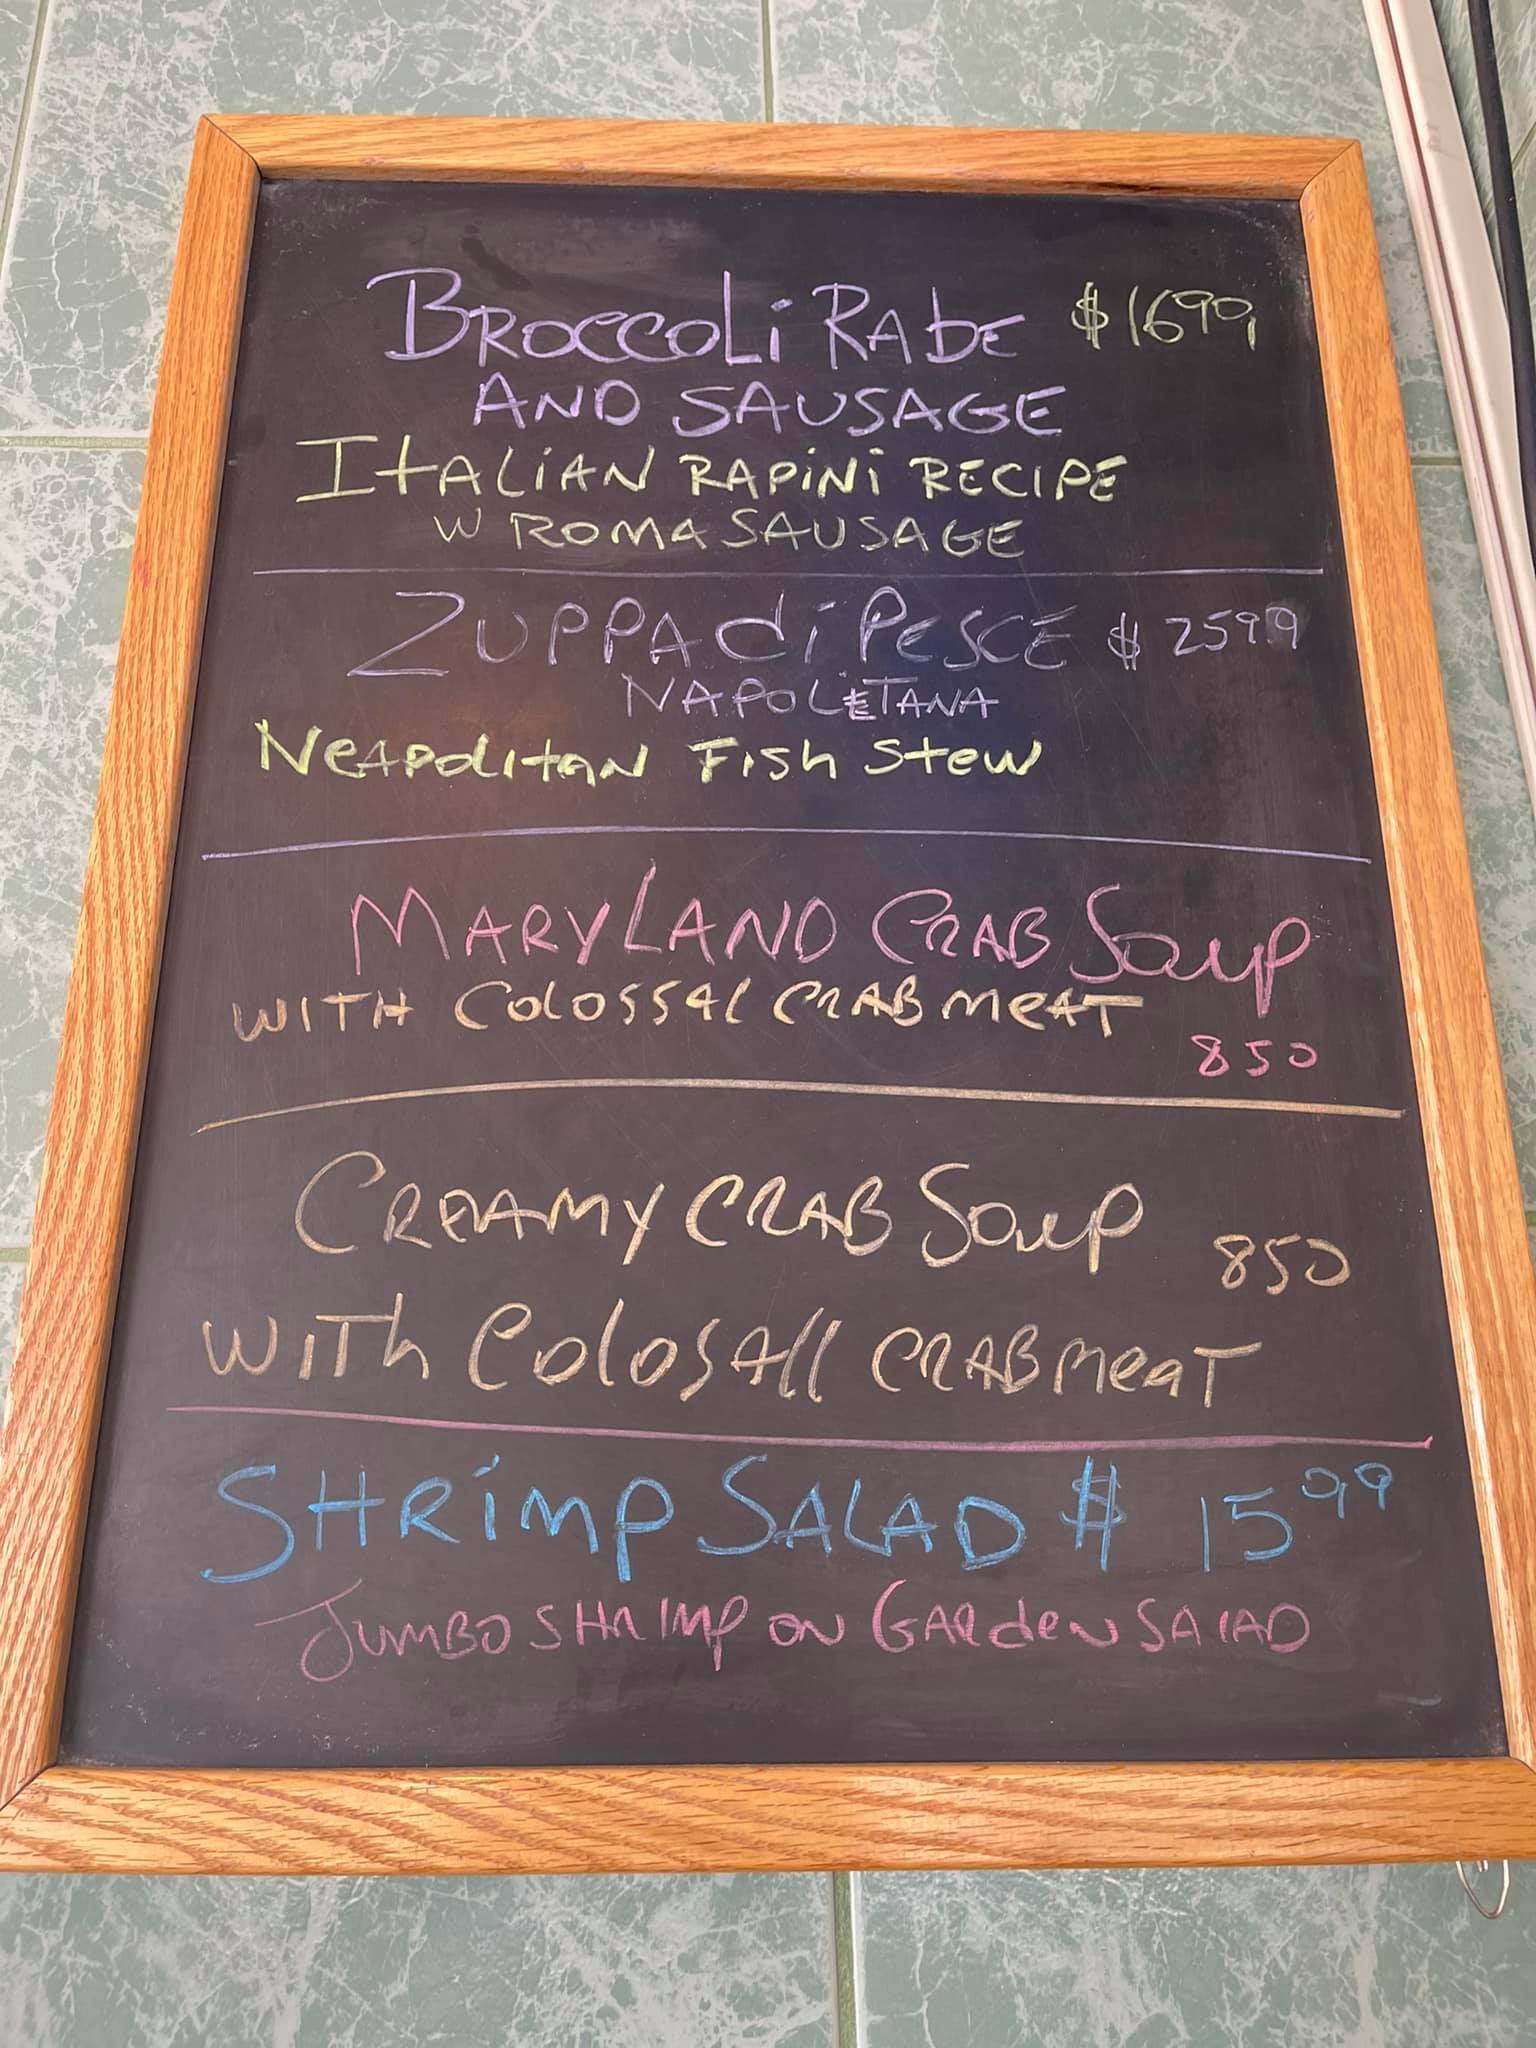 BROCCOLi RAbE $1690,
AND SAUSAGE
ItALiAN RAPiNi RECIPE
W ROMA SAUSAGE
ZUPPA di PESCE $ 2599
NAPOLETANA
NEAPOlitAN Fish Stew
MARYLAND CRAB Soup
WITH COLOSSAL CRABMEAT
850
CREAMY CRAB Soup
850
WITh ColosAll CRABMEAT
SHRimp SALAD $ 1599
JUMBO SHRIMP ON GARdEN SAlAD